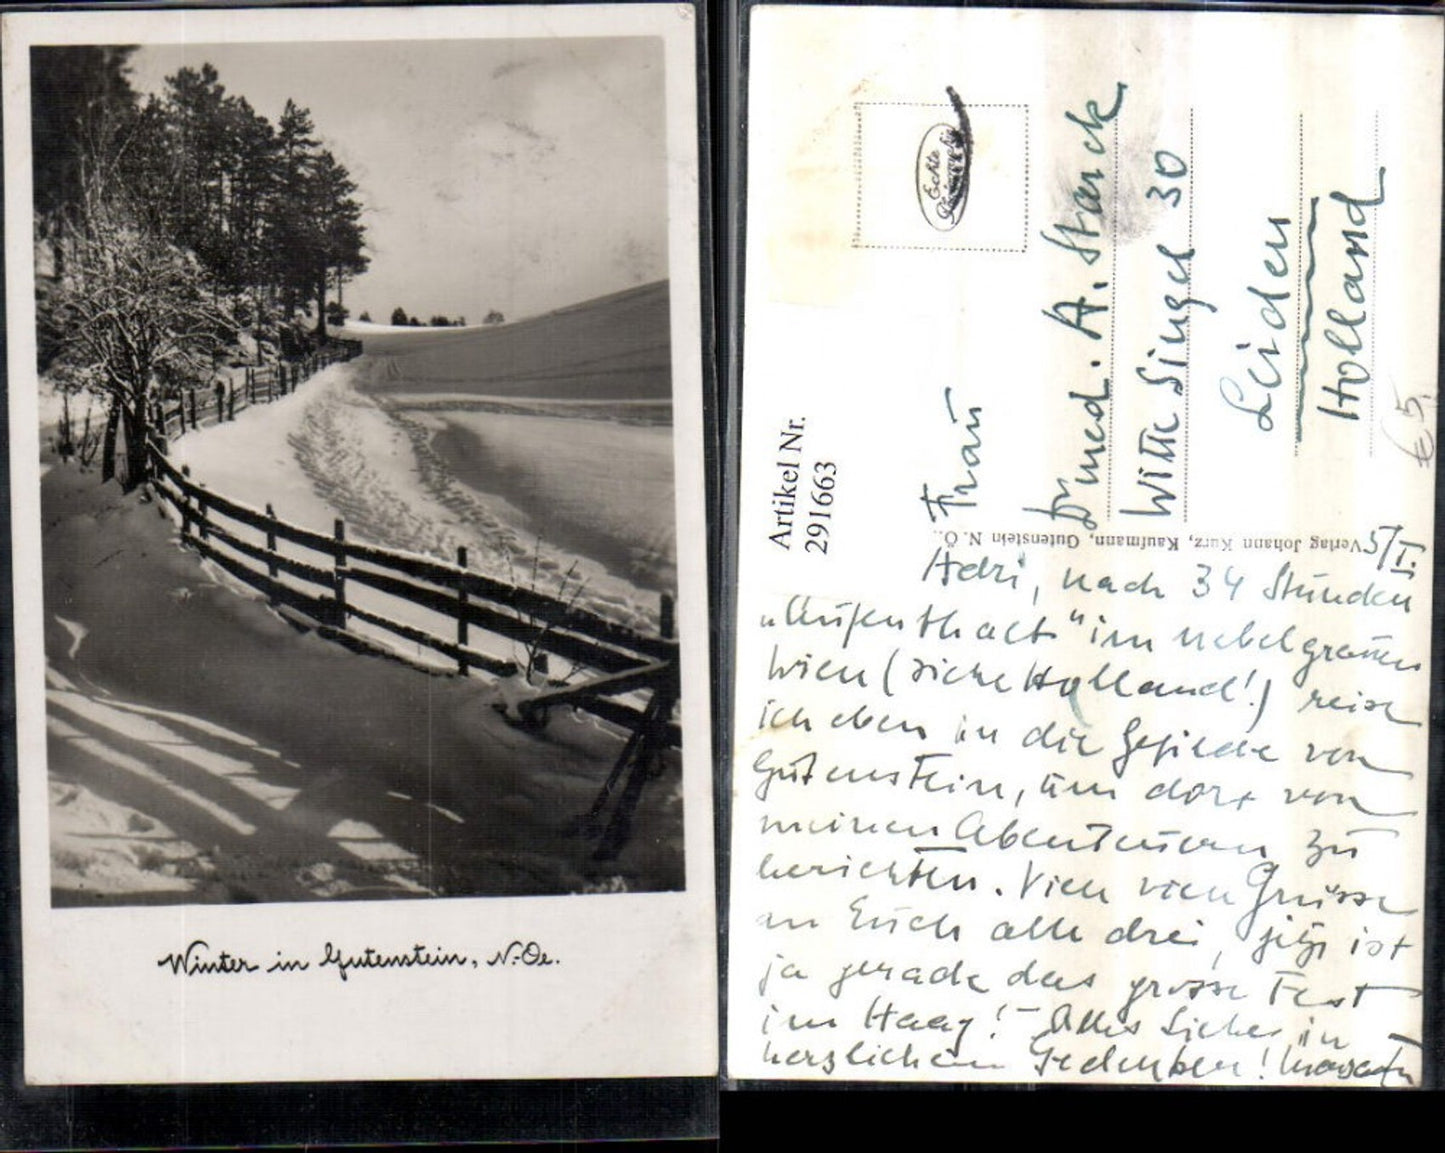 Winter in Gutenstein, N.-Oe.
Artikel Nr.
291663
Echte
Frau
Dr med. A. Starck
Witte Singel 30
Leiden
Holland
€ 5,
Verlag Johann Kurz, Kaufmann, Gutenstein N. Ö.
5/I.
Hedri, nach 34 Stunden
„Aufenthalt" im nebelgrauen
Wien (siehe Holland!) reise
ich eben in die Gefilde von
Gutenstein, um dort von
meinen Abenteuern zu
berichten. Viele viele Grüsse
an Euch alle drei, jetzt ist
ja gerade das grosse Fest
im Haag! - Alles Liebe, in
herzlichem Gedenken!